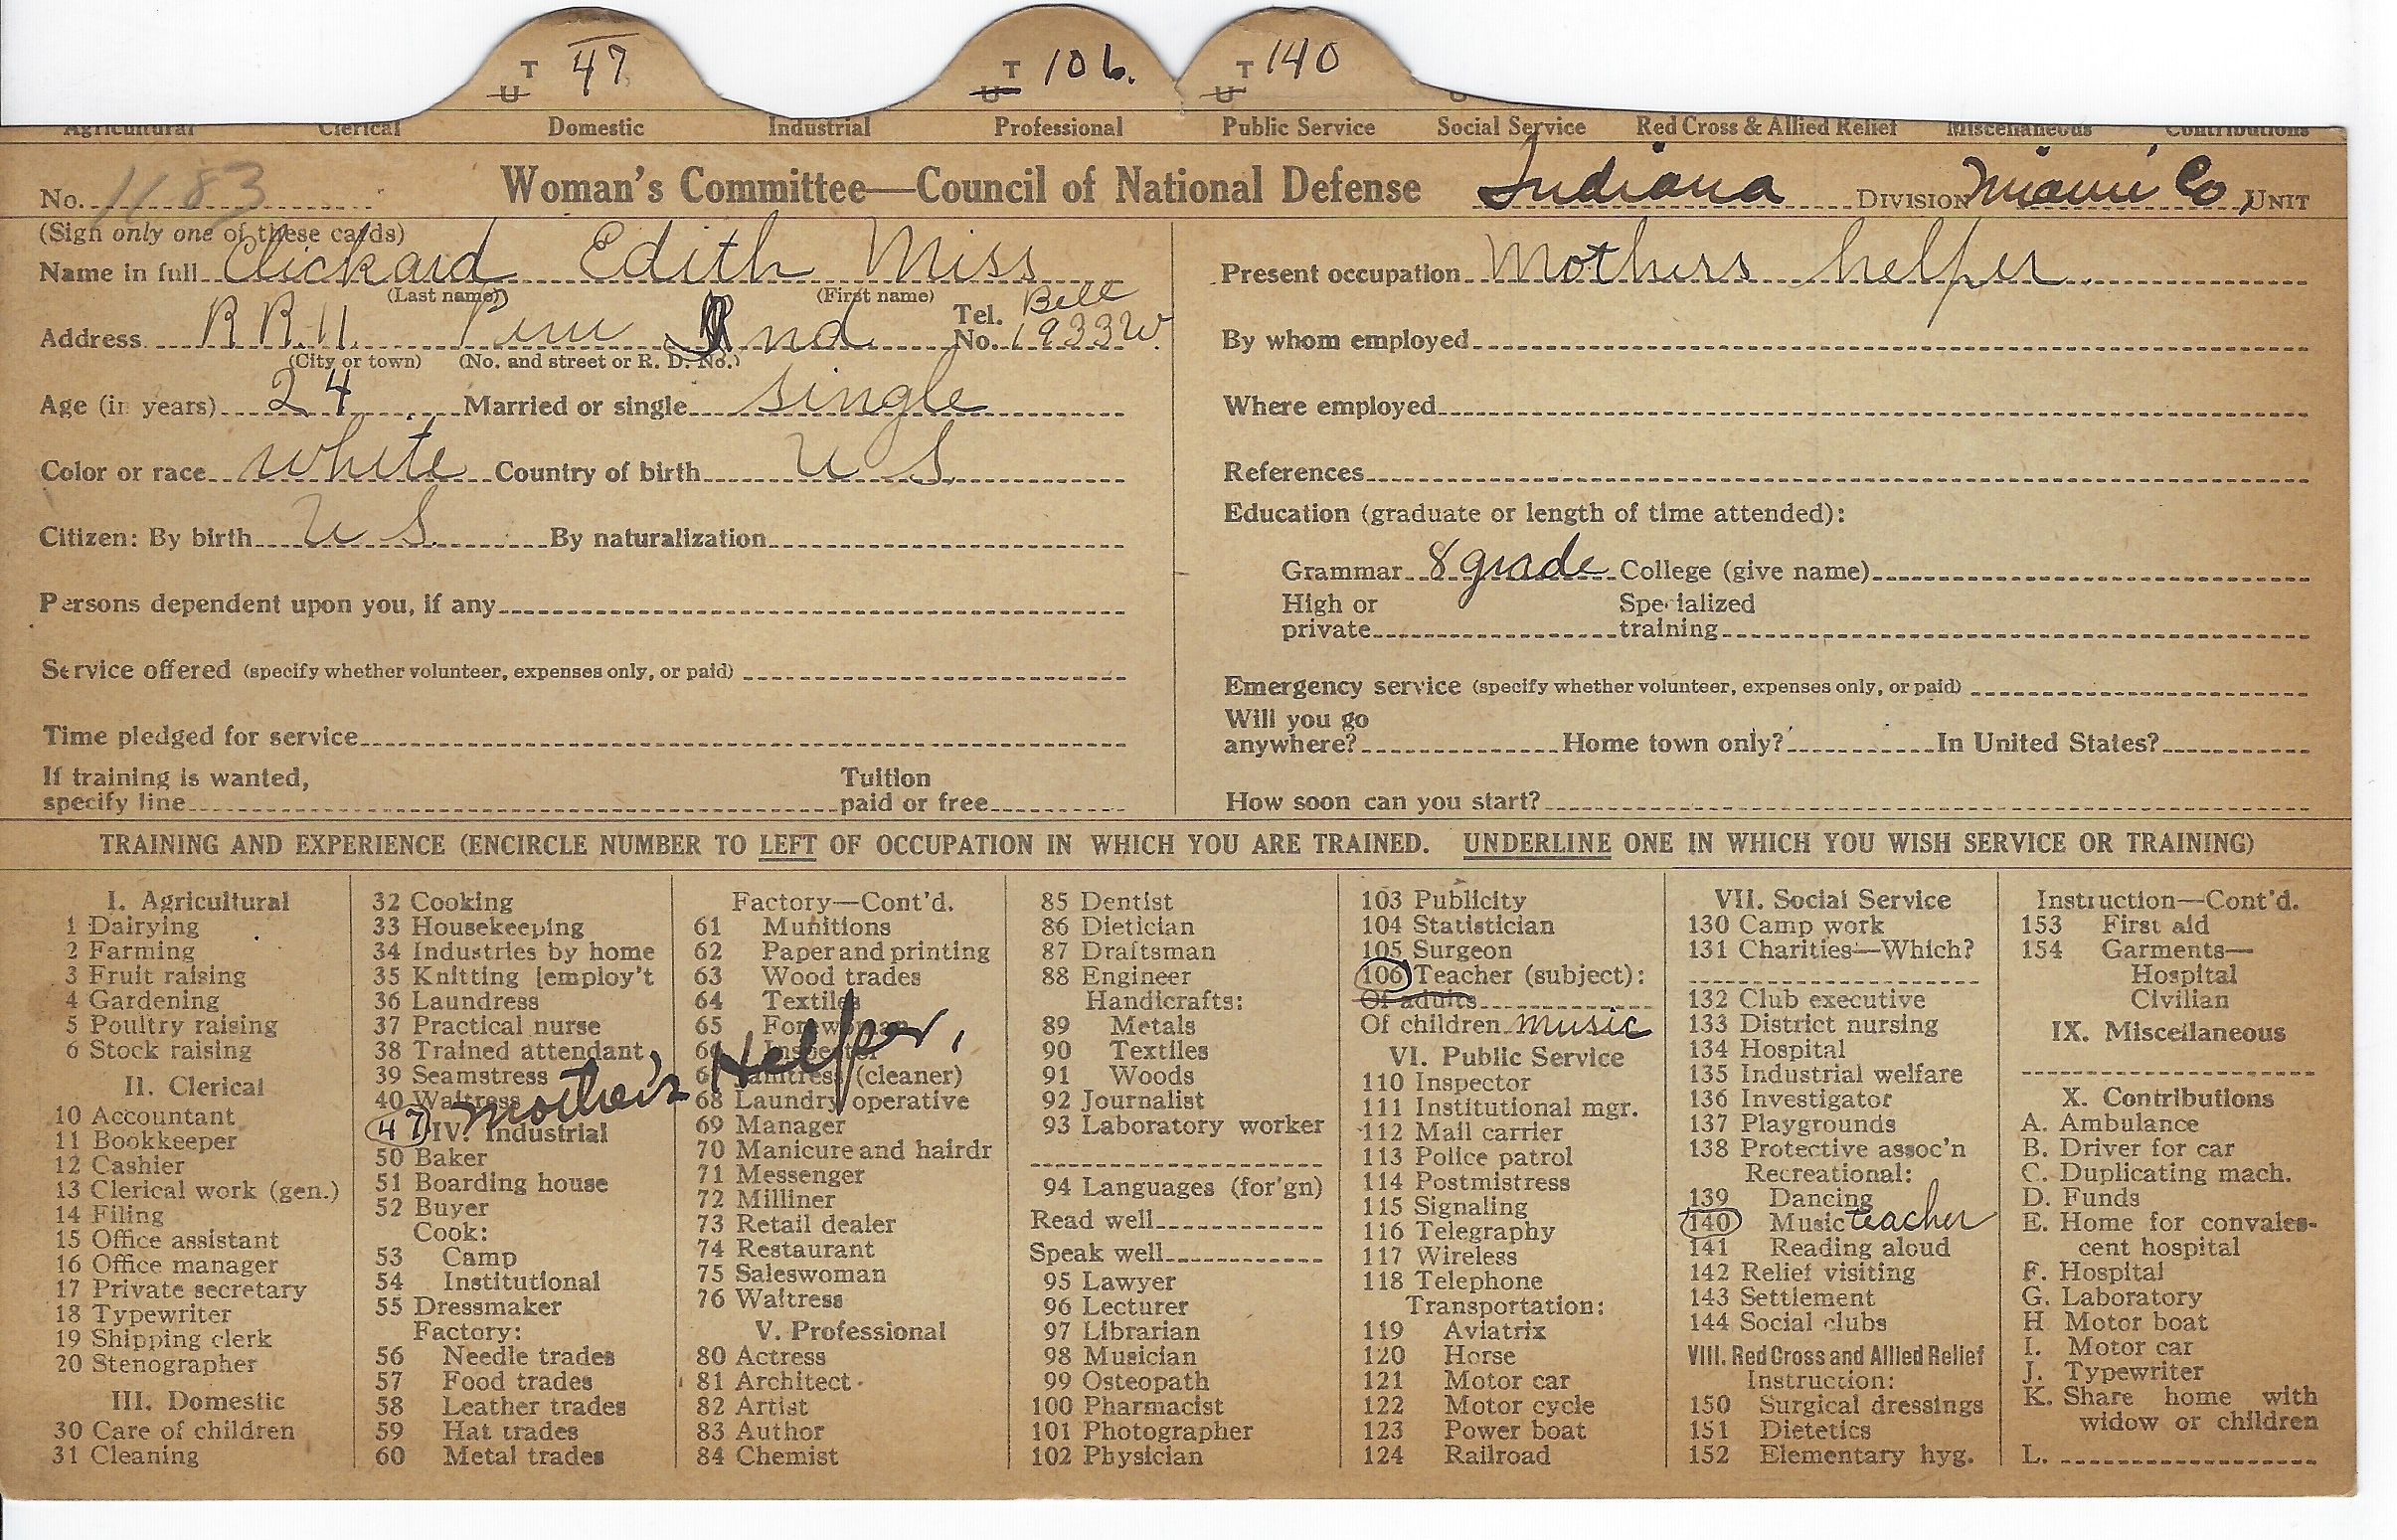 T U 47. T U 106. T U 140
Agricultural Clerical Domestic Industrial Professional Public Service Social Service Red Cross & Allied Relief Miscellaneous Contributions
No. 1183 Woman's Committee—Council of National Defense Indiana DIVISION Miami Co, UNIT
(Sign only one of these cards)
Name in full Clickard Edith Miss
(Last name) (First name)
Address R R 11. Peru Ind. Tel. No. Bell 1933W.
(City or town) (No. and street or R. D. No.)
Age (in years) 24 Married or single single
Color or race white Country of birth U S.
Citizen: By birth U S. By naturalization
Persons dependent upon you, if any
Service offered (specify whether volunteer, expenses only, or paid)
Time pledged for service
If training is wanted,
specify line Tuition paid or free
Present occupation Mothers helper.
By whom employed
Where employed
References
Education (graduate or length of time attended):
Grammar 8 grade College (give name)
High or private Specialized training
Emergency service (specify whether volunteer, expenses only, or paid)
Will you go
anywhere? Home town only? In United States?
How soon can you start?
TRAINING AND EXPERIENCE (ENCIRCLE NUMBER TO LEFT OF OCCUPATION IN WHICH YOU ARE TRAINED. UNDERLINE ONE IN WHICH YOU WISH SERVICE OR TRAINING)
I. Agricultural
1 Dairying
2 Farming
3 Fruit raising
4 Gardening
5 Poultry raising
6 Stock raising
II. Clerical
10 Accountant
11 Bookkeeper
12 Cashier
13 Clerical work (gen.)
14 Filing
15 Office assistant
16 Office manager
17 Private secretary
18 Typewriter
19 Shipping clerk
20 Stenographer
III. Domestic
30 Care of children
31 Cleaning
32 Cooking
33 Housekeeping
34 Industries by home
35 Knitting [employ't
36 Laundress
37 Practical nurse
38 Trained attendant
39 Seamstress
40 Waitress
47 Mother's Helper.
IV. Industrial
50 Baker
51 Boarding house
52 Buyer
Cook:
53 Camp
54 Institutional
55 Dressmaker
Factory:
56 Needle trades
57 Food trades
58 Leather trades
59 Hat trades
60 Metal trades
Factory—Cont'd.
61 Munitions
62 Paper and printing
63 Wood trades
64 Textiles
65 Forewoman
66 Inspector
67 Janitress (cleaner)
68 Laundry operative
69 Manager
70 Manicure and hairdr
71 Messenger
72 Milliner
73 Retail dealer
74 Restaurant
75 Saleswoman
76 Waitress
V. Professional
80 Actress
81 Architect
82 Artist
83 Author
84 Chemist
85 Dentist
86 Dietician
87 Draftsman
88 Engineer
Handicrafts:
89 Metals
90 Textiles
91 Woods
92 Journalist
93 Laboratory worker
94 Languages (for'gn)
Read well
Speak well
95 Lawyer
96 Lecturer
97 Librarian
98 Musician
99 Osteopath
100 Pharmacist
101 Photographer
102 Physician
103 Publicity
104 Statistician
105 Surgeon
106 Teacher (subject):
Of adults
Of children music
VI. Public Service
110 Inspector
111 Institutional mgr.
112 Mail carrier
113 Police patrol
114 Postmistress
115 Signaling
116 Telegraphy
117 Wireless
118 Telephone
Transportation:
119 Aviatrix
120 Horse
121 Motor car
122 Motor cycle
123 Power boat
124 Railroad
VII. Social Service
130 Camp work
131 Charities—Which?
132 Club executive
133 District nursing
134 Hospital
135 Industrial welfare
136 Investigator
137 Playgrounds
138 Protective assoc'n
Recreational:
139 Dancing
140 Music teacher
141 Reading aloud
142 Relief visiting
143 Settlement
144 Social clubs
VIII. Red Cross and Allied Relief
Instruction:
150 Surgical dressings
151 Dietetics
152 Elementary hyg.
Instruction—Cont'd.
153 First aid
154 Garments—
Hospital
Civilian
IX. Miscellaneous
X. Contributions
A. Ambulance
B. Driver for car
C. Duplicating mach.
D. Funds
E. Home for convales-
cent hospital
F. Hospital
G. Laboratory
H Motor boat
I. Motor car
J. Typewriter
K. Share home with
widow or children
L.